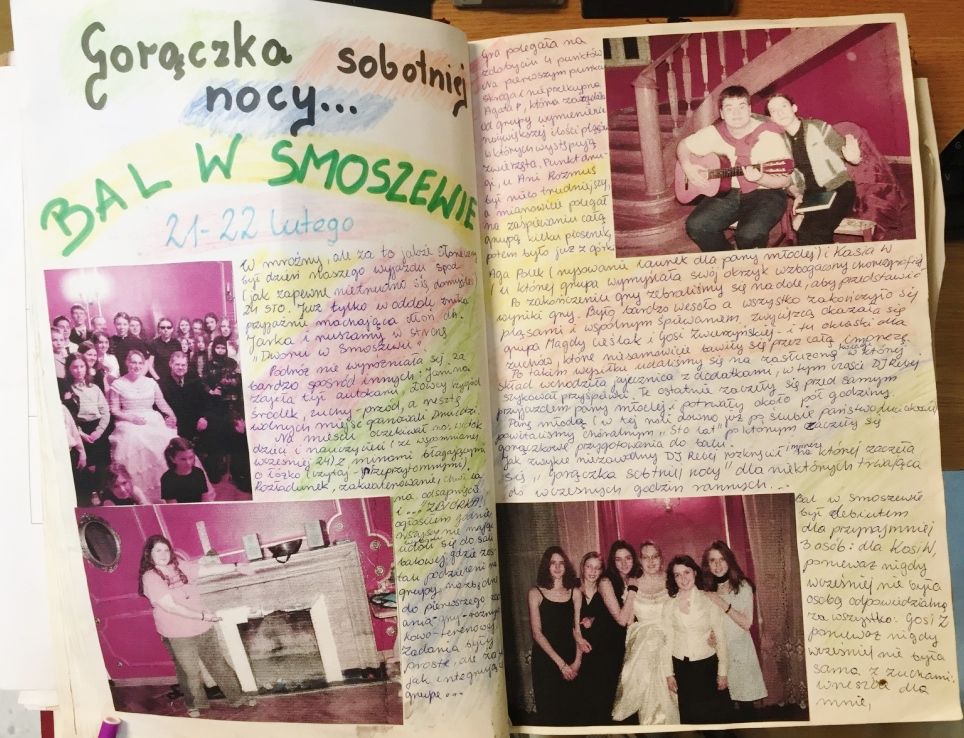 Gorączka sobotniej
nocy...
BAL W SMOSZEWIE
21-22 lutego
W mroźny, ale za to jakże słoneczny
był dzień naszego wyjazdu spod
(jak zapewne nietrudno się domyśleć)
24 STO. Już tylko w oddali znika
przyjaźnie machająca dłoń dh.
Jarka i ruszamy w stronę
"Dworu w Smoszewie".
Podróż nie wyróżniała się za
bardzo spośród innych: Jamina
zajęła tył autokaru, łowcy przygód
środek, zuchy przód, a resztę
wolnych miejsc panowali
Na miejscu oczekiwał nas widok
dzieci i nauczycieli (ze wspomnianej
wcześniej 24) z minami błagającymi
o łóżko (czytaj - nieprzytomnymi).
Rozładunek, zakwaterowanie, chwila
na odsapnięcie
i ... "ZBIÓRKA!"
do sali
balowej gdzie zos-
tali podzieleni na
grupy
do pierwszego zad-
ania-gry
kowo-terenowej.
Zadania były
proste, ale za to
jak integrują
grupę...
Gra polegała na
zdobyciu 4 punktów.
Na pierwszym punkcie
sroga i nieprzekupna
Agata P., która zażądała
od grupy wymienienia
największej ilości pląsów
w których występują
zwierzęta. Punkt dru-
gi, u Ani Rozmus
był nieco trudniejszy,
a mianowicie polegał
na zaśpiewaniu całą
grupą kilku piosenek,
potem było już z górki
Aga Polk (rysowanie laurek dla pary młodej) i Kasia W
(u której grupa wymyślała swój okrzyk wzbogacony choreografią)
Po zakończeniu gry zebraliśmy się na dole, aby przedstawić
wyniki gry. Było bardzo wesoło a wszystko zakończyło się
pląsami i wspólnym śpiewaniem. Zwycięzcą okazała się
grupa Magdy Cieślak i Gosi Zwierzyńskiej - i tu oklaski dla
zuchów, które niesamowicie bawiły się przez całą imprezę.
Po takim wysiłku udaliśmy się na zasłużoną kolację w której
skład wchodziła jajecznica z dodatkami, w tym czasie DJ Rebej
szykował przyśpiewki. Te ostatnie zaczęły się przed samym
przyjazdem pary młodej i potrwały około pół godziny.
Parę młodą (w tej roli dawno już po ślubie państwo
powitaliśmy chóralnym "sto lat" po którym zaczęły się
gorączkowe przygotowania do balu.
Jak zwykle niezawodny DJ Rebej rozkręcił imprezę na której zaczęła
się "gorączka sobotniej nocy" dla niektórych trwająca
do wczesnych godzin rannych...
Bal w Smoszewie
był debiutem
dla przynajmniej
3 osób: dla Kasi W,
ponieważ nigdy
wcześniej nie była
osobą odpowiedzialną
za wszystko. Gosi Z
ponieważ nigdy
wcześniej nie była
sama z zuchami,
wreszcie dla
mnie,